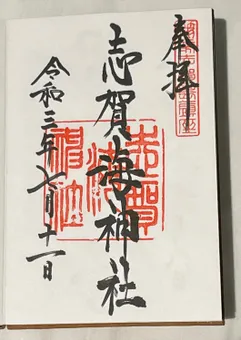 奉拝
志賀海神社
令和三年七月十一日
志賀海神社